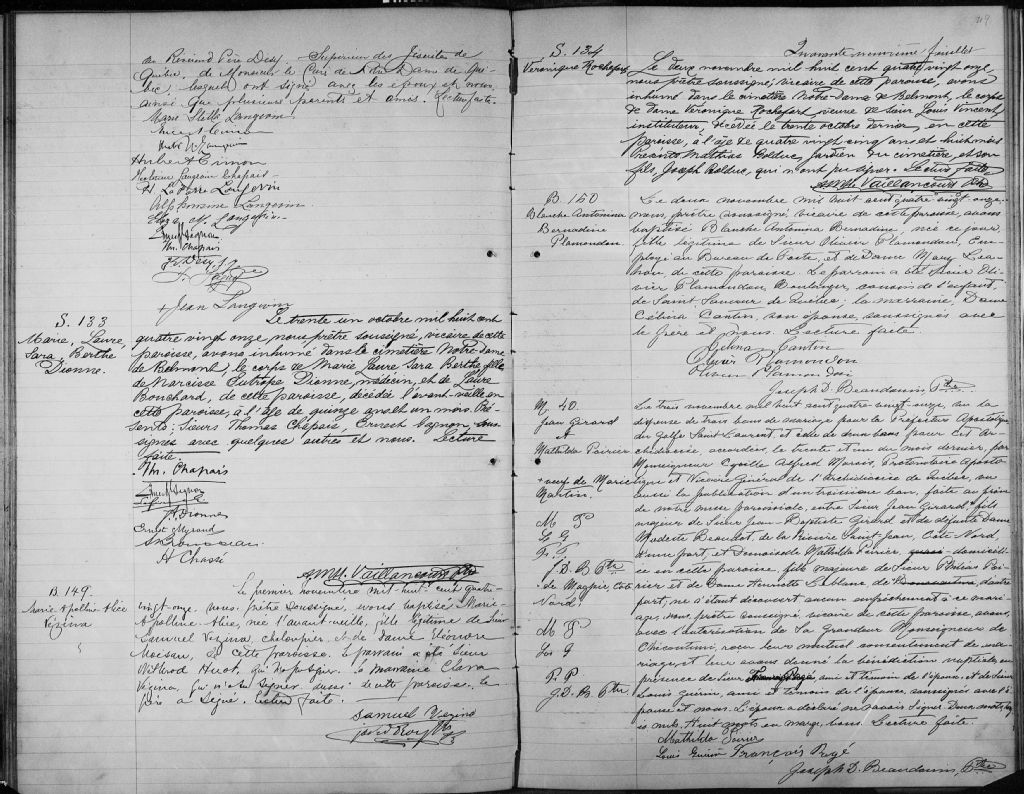 au Révérend Père Désy, Supérieur des Jésuites de
Québec, de Monsieur le Curé de Notre Dame de Qué-
bec, lesquels ont signé avec les époux et nous,
ainsi que plusieurs parents et amis. Lecture faite.
Marie Stella Langevin
Hubert Simon
Langevin Chapais
H. La Pierre Langevin
Alphonsine Langevin
M. Langevin
Ernest Gagnon
Th. Chapais
+ Jean Langevin
S. 133
Marie, Laure,
Sara, Berthe
Dionne.
Le trente un octobre mil huit cent
quatre vingt onze, nous prêtre soussigné, vicaire de cette
paroisse, avons inhumé dans le cimetière Notre Dame
de Belmont, le corps de Marie Laure Sara Berthe, fille
de Narcisse Eutrope Dionne, médecin, et de Laure
Bouchard, de cette paroisse, décédée l'avant-veille en
cette paroisse, à l'âge de quinze ans et un mois. Pré-
sents: Sieurs Thomas Chapais, Ernest Gagnon, sous-
signés avec quelques autres et nous. Lecture
faite.
Th. Chapais
Ernest Gagnon
Dionne
Ernest Myrand
H Chassé
A M H. Vaillancourt Ptre
B 149.
Marie Apolline Alice
Vézina
Le premier novembre mil-huit-cent quatre-
vingt-onze, nous prêtre soussigné, avons baptisé Marie-
Apolline-Alice, née l'avant-veille, fille légitime de Sieur
Samuel Vézina, charpentier, et de Dame Eléonore
de cette paroisse. Le parrain a été Sieur
Wilbrod Huot, qui n'a pu signer. La marraine Clara
Vézina, qui n'a su signer, aussi de cette paroisse, le
père a signé. Lecture faite.
Samuel Vezina
119
Quarante neuvième feuillet
S. 134
Véronique Rochefort
Le deux novembre mil huit cent quatre vingt onze,
nous prêtre soussigné, vicaire de cette paroisse, avons
inhumé dans le cimetière Notre-Dame de Belmont, le corps
de dame Véronique Rochefort, veuve de Sieur Louis Vincent,
instituteur, décédée le trente octobre dernier, en cette
paroisse, à l'âge de quatre vingt cinq ans et huit mois
Présents Matthias Bolduc, gardien du cimetière, et son
fils, Joseph Bolduc, qui n'ont pu signer. Lecture faite
A M H. Vaillancourt Ptre
B 150
Blanche Antonina
Bernadine
Plamondon.
Le deux novembre mil huit cent quatre-vingt-onze,
nous, prêtre soussigné, vicaire de cette paroisse, avons
baptisé Blanche Antonina Bernadine, née ce jour,
fille légitime de Sieur Olivier Plamondon, Em-
ployé au Bureau de Poste, et de Dame Mary Lea-
hon, de cette paroisse. Le parrain a été Sieur Oli-
vier Plamondon, Boulanger, cousin de l'enfant,
de Saint Sauveur de Québec; la marraine, Dame
Célina Cantin, son épouse, soussignés avec
le père et nous. Lecture faite.
Célina Cantin
Olivier Plamondon
Olivier Plamondon
Joseph D. Beaudouin, Ptre
M. 40
Jean Girard
et
Mathilda Poirier
+ veuf de Marie
Martin.
M P
J G
F P
J. D. B Ptre
de Magpie, Côte
Nord!
M P
Ls G
F. P
J. D. B Ptre
Le trois novembre mil huit cent quatre-vingt-onze, vu la
dispense de trois bans de mariage pour la Préfecture Apostolique
du Golfe Saint Laurent, et celle de deux bans pour cet Ar-
chidiocèse, accordées, le trente et un du mois dernier, par
Monseigneur Cyrille Alfred Marois, Protonotaire Aposto-
lique et Vicaire Général de l'Archidiocèse de Québec, vu
aussi la publication d'un troisième ban, faite au prône
de notre messe paroissiale, entre Sieur Jean Girard + fils
majeur de Sieur Jean-Baptiste Girard et de défunte Dame
Modeste Beaudot, de la Rivière Saint-Jean, Côte Nord,
d'une part, et Demoiselle Mathilda Poirier, domicili-
ée en cette paroisse, fille majeure de Sieur Poi-
rier et de Dame Henriette Leblanc de d'autre
part; ne s'étant découvert aucun empêchement à ce mari-
age, nous, prêtre soussigné, vicaire de cette paroisse, avons,
avec l'autorisation de Sa Grandeur Monseigneur de
Chicoutimi, reçu leur mutuel consentement de ma-
riage, et leur avons donné la bénédiction nuptiale, en
présence de Sieur François Pagé, ami et témoin de l'époux, et de Sieur
Louis Guérin, ami et témoin de l'épouse, soussignés avec l'é-
pouse et nous. L'époux a déclaré ne savoir signer. Deux mots ray-
és nuls. Huit mots en marge, bons. Lecture faite.
Mathilda Poirier
Louis Guérin François Pagé
Joseph D. Beaudouin, Ptre